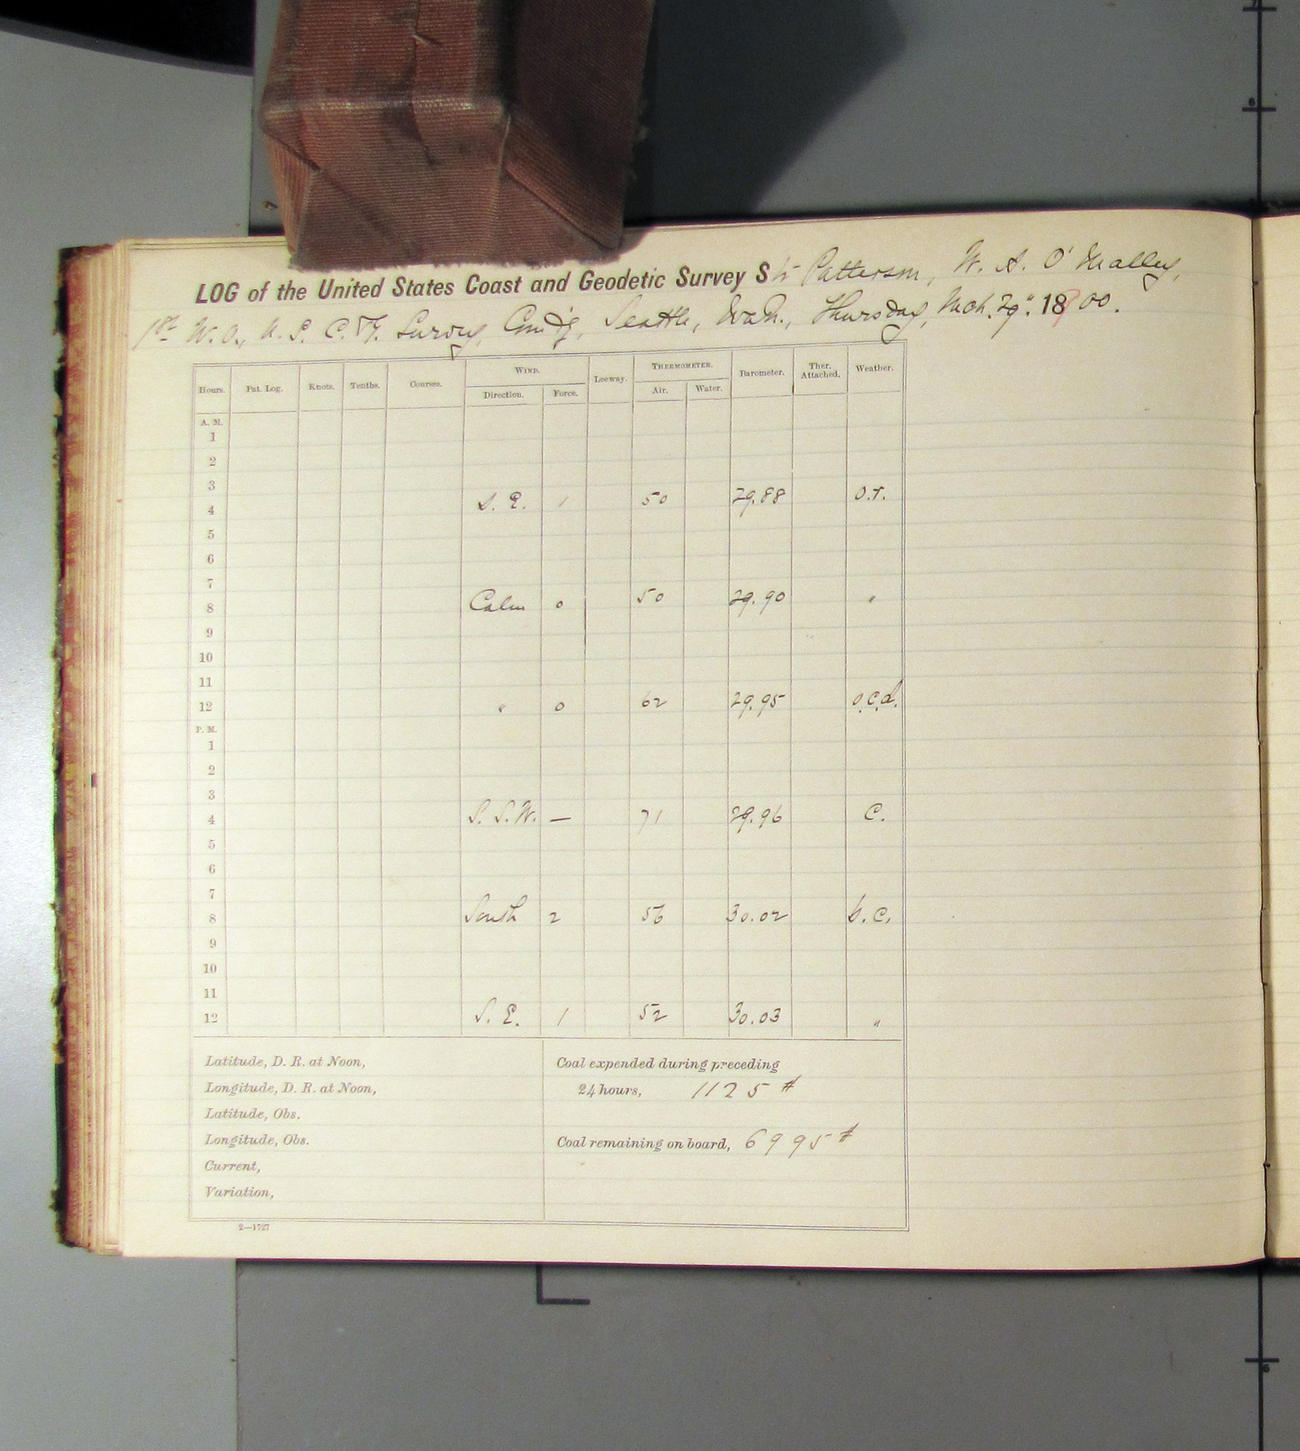 LOG of the United States Coast and Geodetic Survey Str Patterson, W. A. O'Malley,
1st W. O., U. S. C. & G. Survey, Com'd'g, Seattle, Wash., Thursday, Mch. 29", 1800.
Hours. Pat. Log. Knots. Tenths. Courses. WIND. Leeway. THERMOMETER. Barometer. Ther. Attached. Weather.
Direction. Force. Air. Water.
A. M.
1
2
3
4 S. E. 1 50 29.88 o.r.
5
6
7
8 Calm 0 50 29.90 "
9
10
11
12 " 0 62 29.95 o.c.d.
P. M.
1
2
3
4 S. S. W. — 71 29.96 c.
5
6
7
8 South 2 56 30.02 b.c.
9
10
11
12 S. E. 1 52 30.03 "
Latitude, D. R. at Noon, Coal expended during preceding
Longitude, D. R. at Noon, 24 hours, 1125 #
Latitude, Obs.
Longitude, Obs. Coal remaining on board, 6995 #
Current,
Variation,
2—1727